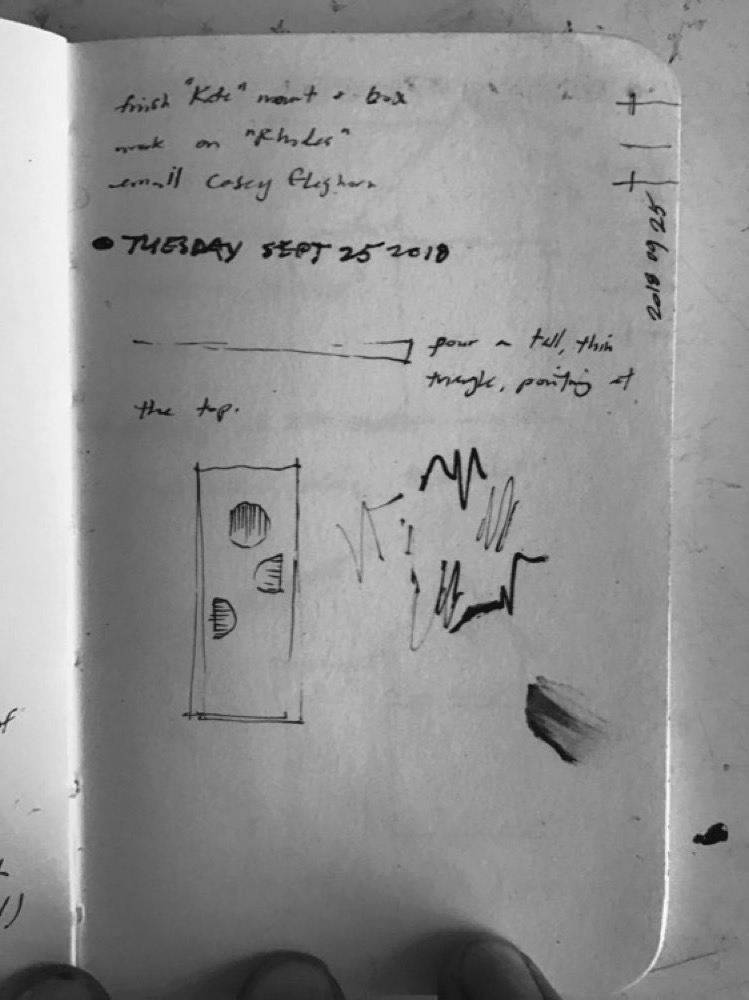 finish "Kate" mount + box
work on "Rhodes"
email Casey Gleghorn
• TUESDAY SEPT 25 2018
2018 09 25
pour a tall, thin
triangle, pointing at
the top.